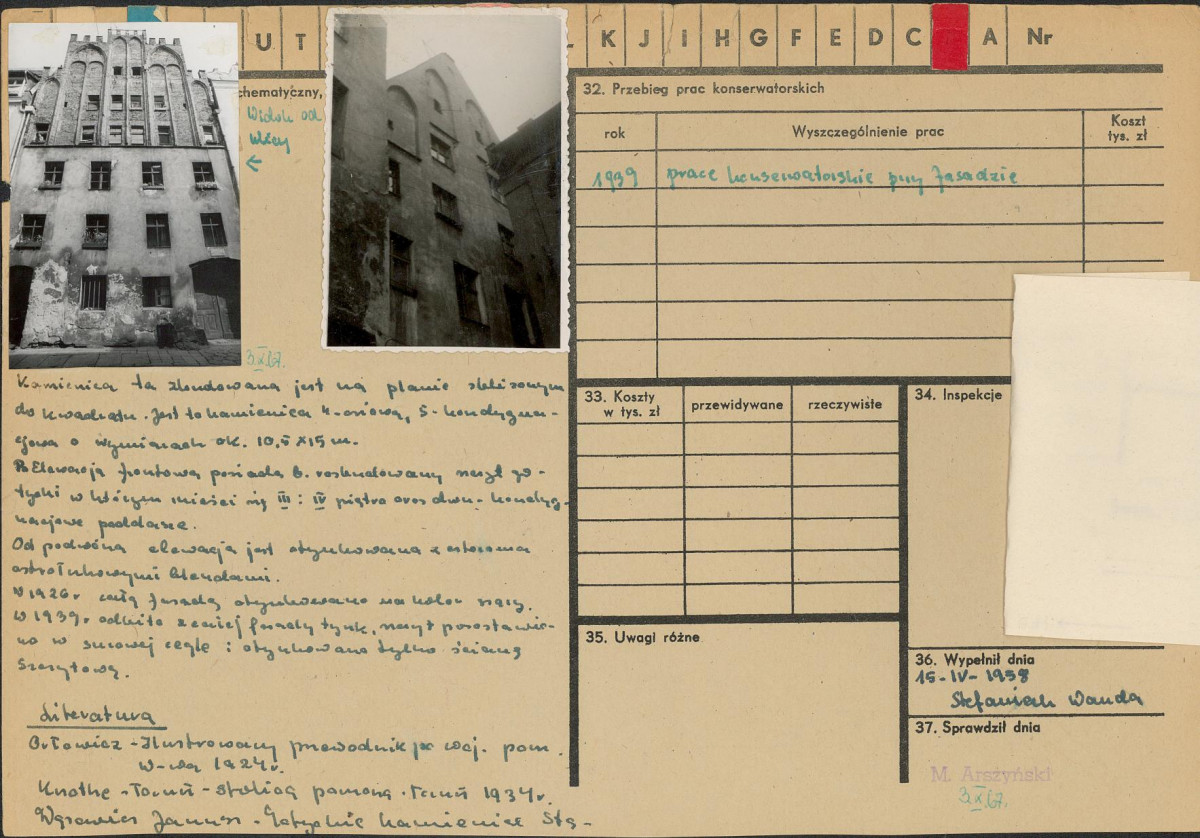 U T
L K J I H G F E D C A Nr
chematyczny,
Widok od
ulicy
←
3.X.67.
Kamienica ta zbudowana jest na planie zbliżonym
do kwadratu. Jest to kamienica 4-osiowa, 5-kondygna-
cjowa o wymiarach ok. 10,5 x 15 m.
Elewacja frontowa posiada b. rozbudowany szczyt go-
tycki w którym mieści się III i IV piętro oraz dwu-kondyg-
nacjowe poddasze.
Od podwórza elewacja jest otynkowana z
ostrołukowymi blendami.
W 1926 r całą fasadę otynkowano na kolor szary.
W 1939 r odbito z całej fasady tynk, szczyt pozostawio-
no w surowej cegle i otynkowano tylko ścianę
szczytową.
Literatura
Orłowicz - Ilustrowany przewodnik po woj. pom.
W-wa 1924 r.
Knothe - Toruń - stolicą pomorza. Toruń 1934 r.
Janusz - kamienice Sta-
32. Przebieg prac konserwatorskich
rok Wyszczególnienie prac Koszt
tys. zł
1939 prace konserwatorskie przy fasadzie
33. Koszty
w tys. zł przewidywane rzeczywiste
34. Inspekcje
35. Uwagi różne
36. Wypełnił dnia
15-IV-1958
Stefaniak Wanda
37. Sprawdził dnia
M. Arszyński
3.X.67.